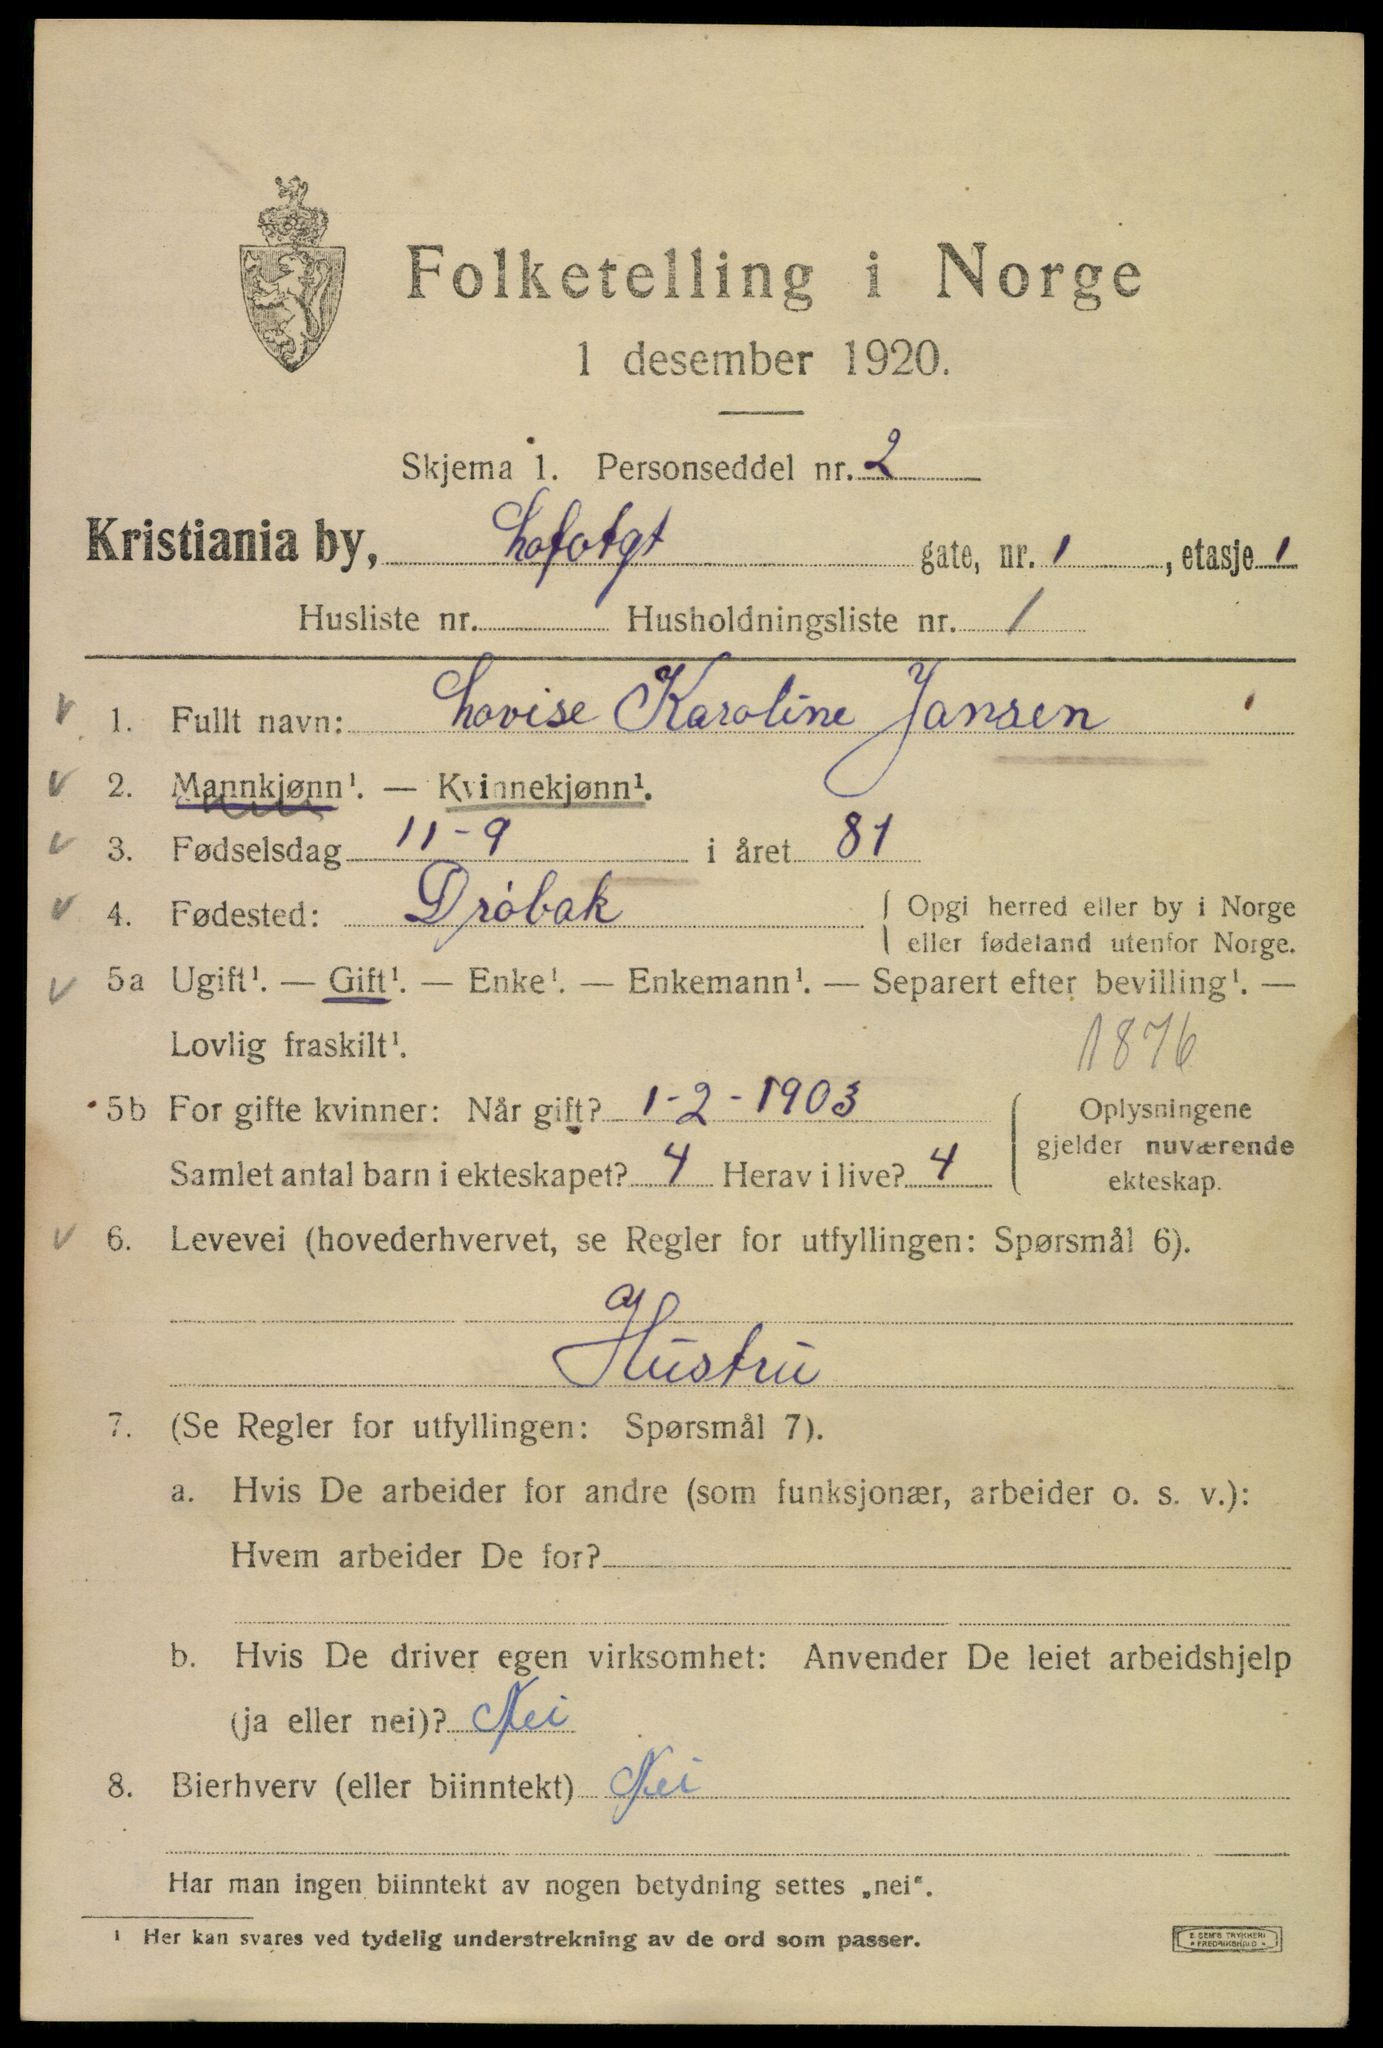 Folketelling i Norge
1 desember 1920.
Skjema 1. Personseddel nr. 2
Kristiania by, Lofotgt gate, nr. 1, etasje 1
Husliste nr. Husholdningsliste nr. 1
1. Fullt navn: Lovise Karoline Jansen
2. Mannkjønn¹. — Kvinnekjønn¹.
3. Fødselsdag 11-9 i året 81
4. Fødested: Dröbak { Opgi herred eller by i Norge
eller fødeland utenfor Norge.
5a Ugift¹. — Gift¹. — Enke¹. — Enkemann¹. — Separert efter bevilling¹. —
Lovlig fraskilt¹. 1876
5b For gifte kvinner: Når gift? 1-2-1903 { Oplysningene
gjelder nuværende
Samlet antal barn i ekteskapet? 4 Herav i live? 4 ekteskap.
6. Levevei (hovederhvervet, se Regler for utfyllingen: Spørsmål 6).
Hustru
7. (Se Regler for utfyllingen: Spørsmål 7).
a. Hvis De arbeider for andre (som funksjonær, arbeider o. s. v.):
Hvem arbeider De for?
b. Hvis De driver egen virksomhet: Anvender De leiet arbeidshjelp
(ja eller nei)? Nei
8. Bierhverv (eller biinntekt) Nei
Har man ingen biinntekt av nogen betydning settes „nei“.
¹ Her kan svares ved tydelig understrekning av de ord som passer.
E. SEM'S TRYKKERI
• FREDRIKSHALD •